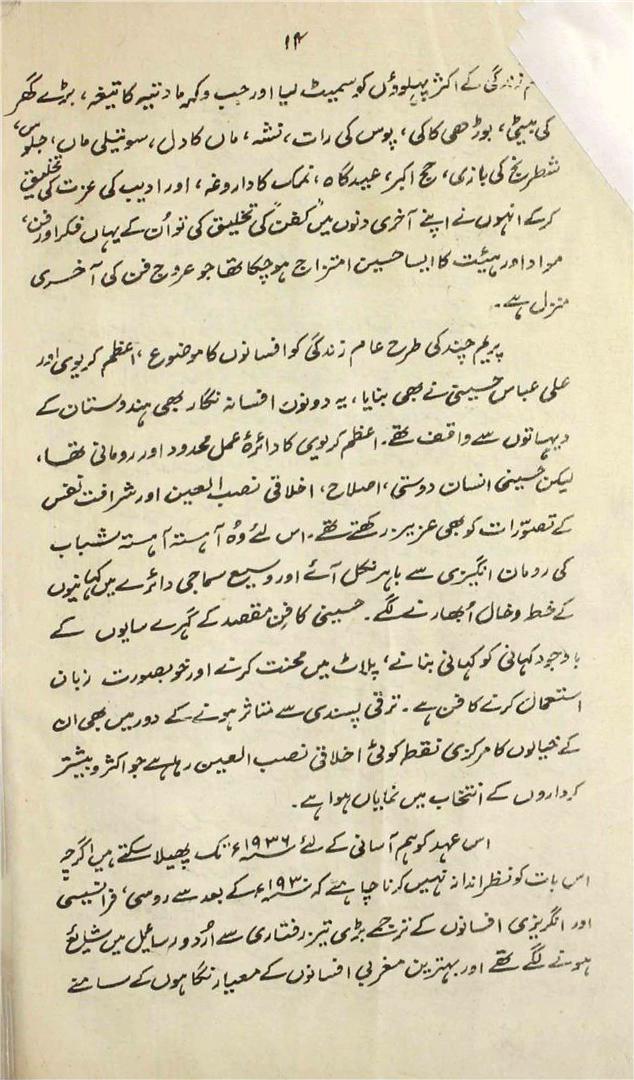 ۱۴
زندگی کے اکثر پہلوؤں کو سمیٹ لیا اور جب وکرمادتیہ کا تیغہ، بڑے گھر
کی بیٹی، بوڑھی کاکی، پوس کی رات، نشہ، ماں کا دل، سوتیلی ماں، جلوس،
شطرنج کی بازی، حج اکبر، عیدگاہ، نمک کا داروغہ، اور ادیب کی عزت کی تخلیق
کرکے انہوں نے اپنے آخری دنوں میں "کفن" کی تخلیق کی تو اُن کے یہاں فکر اور فن،
مواد اور ہیئت کا ایسا حسین امتزاج ہوچکا تھا جو عروج فن کی آخری
منزل ہے۔
پریم چند کی طرح عام زندگی کو افسانوں کا موضوع، اعظم کریوی اور
علی عباس حسینی نے بھی بنایا، یہ دونوں افسانہ نگار بھی ہندوستان کے
دیہاتوں سے واقف تھے۔ اعظم کریوی کا دائرۂ عمل محدود اور رومانی تھا،
لیکن حسینی انسان دوستی، اصلاح، اخلاقی نصب العین اور شرافت نفس
کے تصوّرات کو بھی عزیز رکھتے تھے۔ اس لئے وُہ آہستہ آہستہ شباب
کی رومان انگیزی سے باہر نکل آئے اور وسیع سماجی دائرے میں کہانیوں
کے خط و خال اُبھارنے لگے۔ حسینی کا فن مقصد کے گہرے سایوں کے
باوجود کہانی کو کہانی بنانے، پلاٹ میں محنت کرنے اور خوبصورت زبان
استعمال کرنے کا فن ہے۔ ترقی پسندی سے متاثر ہونے کے دور میں بھی ان
کے خیالوں کا مرکزی نقطہ کوئی اخلاقی نصب العین رہا ہے جو اکثر و بیشتر
کرداروں کے انتخاب میں نمایاں ہوا ہے۔
اس عہد کو ہم آسانی کے لئے ۱۹۳۶ء تک پھیلا سکتے ہیں اگرچہ
اس بات کو نظر انداز نہیں کرنا چاہئے کہ ۱۹۳۰ء کے بعد سے روسی، فرانسیسی
اور انگریزی افسانوں کے ترجمے بڑی تیز رفتاری سے اُردو رسائل میں شائع
ہونے لگے تھے اور بہترین مغربی افسانوں کے معیار نگاہوں کے سامنے